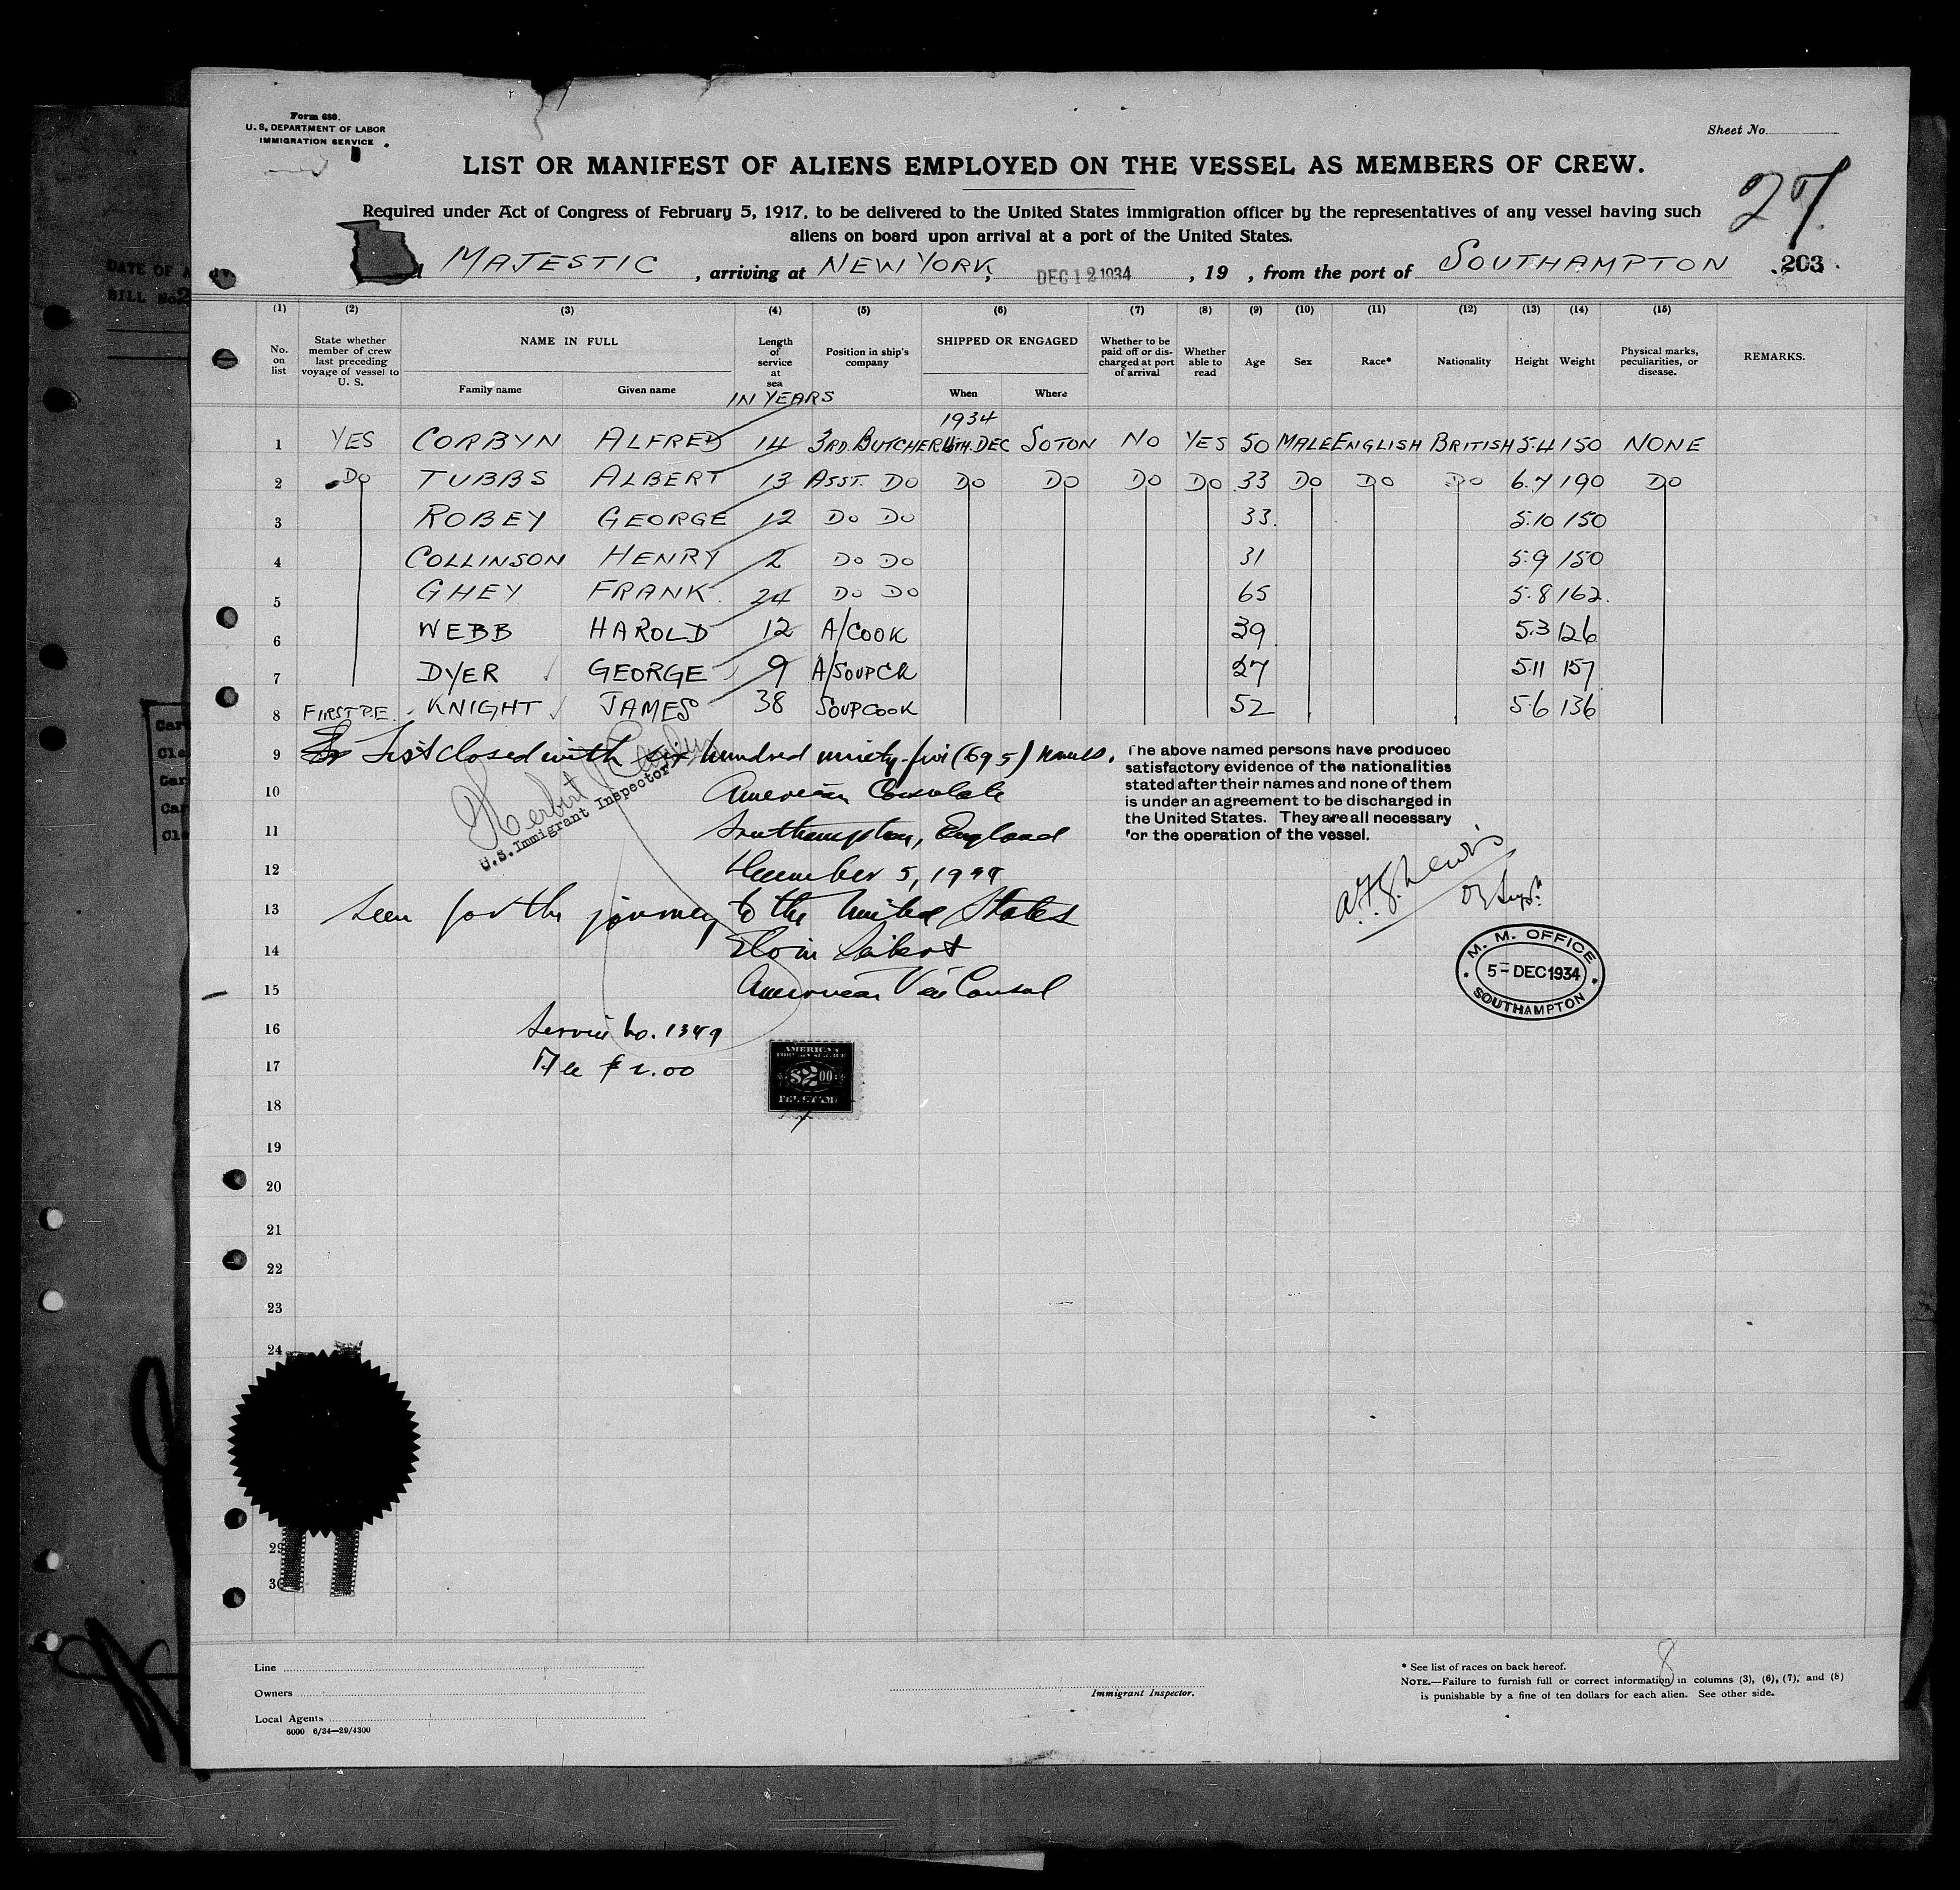 Form 680.
U. S. DEPARTMENT OF LABOR
IMMIGRATION SERVICE
Sheet No.
LIST OR MANIFEST OF ALIENS EMPLOYED ON THE VESSEL AS MEMBERS OF CREW.
27
Required under Act of Congress of February 5, 1917, to be delivered to the United States immigration officer by the representatives of any vessel having such
aliens on board upon arrival at a port of the United States.
MAJESTIC, arriving at NEW YORK, DEC 12 1934, 19 , from the port of SOUTHAMPTON 203
(1) (2) (3) (4) (5) (6) (7) (8) (9) (10) (11) (12) (13) (14) (15)
No. on list State whether member of crew last preceding voyage of vessel to U. S. NAME IN FULL Family name Given name Length of service at sea IN YEARS Position in ship's company SHIPPED OR ENGAGED When Where Whether to be paid off or discharged at port of arrival Whether able to read Age Sex Race* Nationality Height Weight Physical marks, peculiarities, or disease. REMARKS.
1934
1 YES CORBYN ALFRED 14 3RD. BUTCHER DEC SOTON NO YES 50 MALE ENGLISH BRITISH 5.4 150 NONE
2 DO TUBBS ALBERT 13 ASST. DO DO DO DO DO 33 DO DO DO 190 DO
3 ROBEY GEORGE 12 DO DO 33. 5.10 150
4 COLLINSON HENRY 2 DO DO 31 5.9 150
5 GHEY FRANK. 24 DO DO 65 5.8 162.
6 WEBB HAROLD 12 A/COOK 39 5.3 126
7 DYER GEORGE 9 A/SOUP CK 27 5.11 157
8 KNIGHT JAMES 38 SOUP COOK 52 5.6 136
9 List closed with six hundred ninety-five (695) names.
The above named persons have produced
satisfactory evidence of the nationalities
stated after their names and none of them
is under an agreement to be discharged in
the United States. They are all necessary
for the operation of the vessel.
Herbert
U.S. Immigrant Inspector
10 American Consulate
11 Southampton, England
12 December 5, 19
13 Seen for the journey to the United States
14
15 American Vice Consul
Lewis
M. M. OFFICE
5 - DEC 1934
SOUTHAMPTON
16 Service No. 1349
17 Fee $2.00
AMERICAN
FOREIGN SERVICE
$2.00
FEE STAMP
18
19
20
21
22
23
24
29
30
8
Line
Owners
Local Agents
6000 6/34—29/4300
Immigrant Inspector.
* See list of races on back hereof.
NOTE.—Failure to furnish full or correct information in columns (3), (6), (7), and (8)
is punishable by a fine of ten dollars for each alien. See other side.
DATE OF A
BILL No.
Car
Cle
Car
Car
Cle